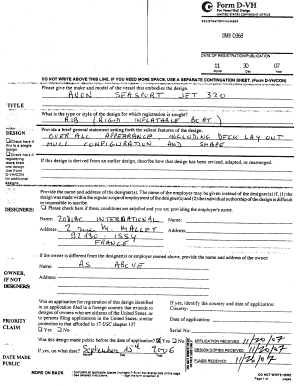 Form D-VH
For Vessel Hull Design
UNITED STATES COPYRIGHT OFFICE
REGISTRATION NUMBER
DVH 0368
DATE OF REGISTRATION/PUBLICATION
11 30 07
Month Day Year
DO NOT WRITE ABOVE THIS LINE. IF YOU NEED MORE SPACE, USE A SEPARATE CONTINUATION SHEET. (Form D-VH/CON)
Please give the make and model of the vessel that embodies the design.
AVON SEASPORT JET 320
TITLE
What is the type or style of the design for which registration is sought?
RIB (RIGID INFLATABLE BOAT)
Provide a brief general statement setting forth the salient features of the design.
DESIGN
OVERALL APPEARANCE INCLUDING DECK LAYOUT
HULL CONFIGURATION AND SHAPE
If this design is derived from an earlier design, describe how that design has been revised, adapted, or rearranged.
Provide the name and address of the designer(s). The name of the employer may be given instead of the designer(s) if, (1) the
design was made within the regular scope of employment of the designer(s) and (2) the individual authorship of the design is difficult
or impossible to ascribe.
DESIGNER(S)
Please check here if these conditions are satisfied and you are providing the employer's name.
Name: ZODIAC INTERNATIONAL Name:
Address: 2 rue M. MALLET Address:
92130 - ISSY
FRANCE
If the owner is different from the designer(s) or employer named above, provide the name and address of the owner:
OWNER,
IF NOT
DESIGNER(S)
Name: AS ABOVE
Address:
PRIORITY
CLAIM
Was an application for registration of this design identified
in an application filed in a foreign country that extends to
designs of owners who are citizens of the United States, or
to persons filing applications in the United States, similar
protection to that afforded in 17 USC chapter 13?
Yes No
If yes, identify the country and date of application:
Country:
Date of application:
Serial No:
DATE MADE
PUBLIC
Was this design made public before the date of application? Yes No
If yes, on what date? September 2006
APPLICATION RECEIVED 11/20/07
DESIGN COPIES RECEIVED 11/26/07
FUNDS RECEIVED 11/26/07
MORE ON BACK
DO NOT WRITE HERE